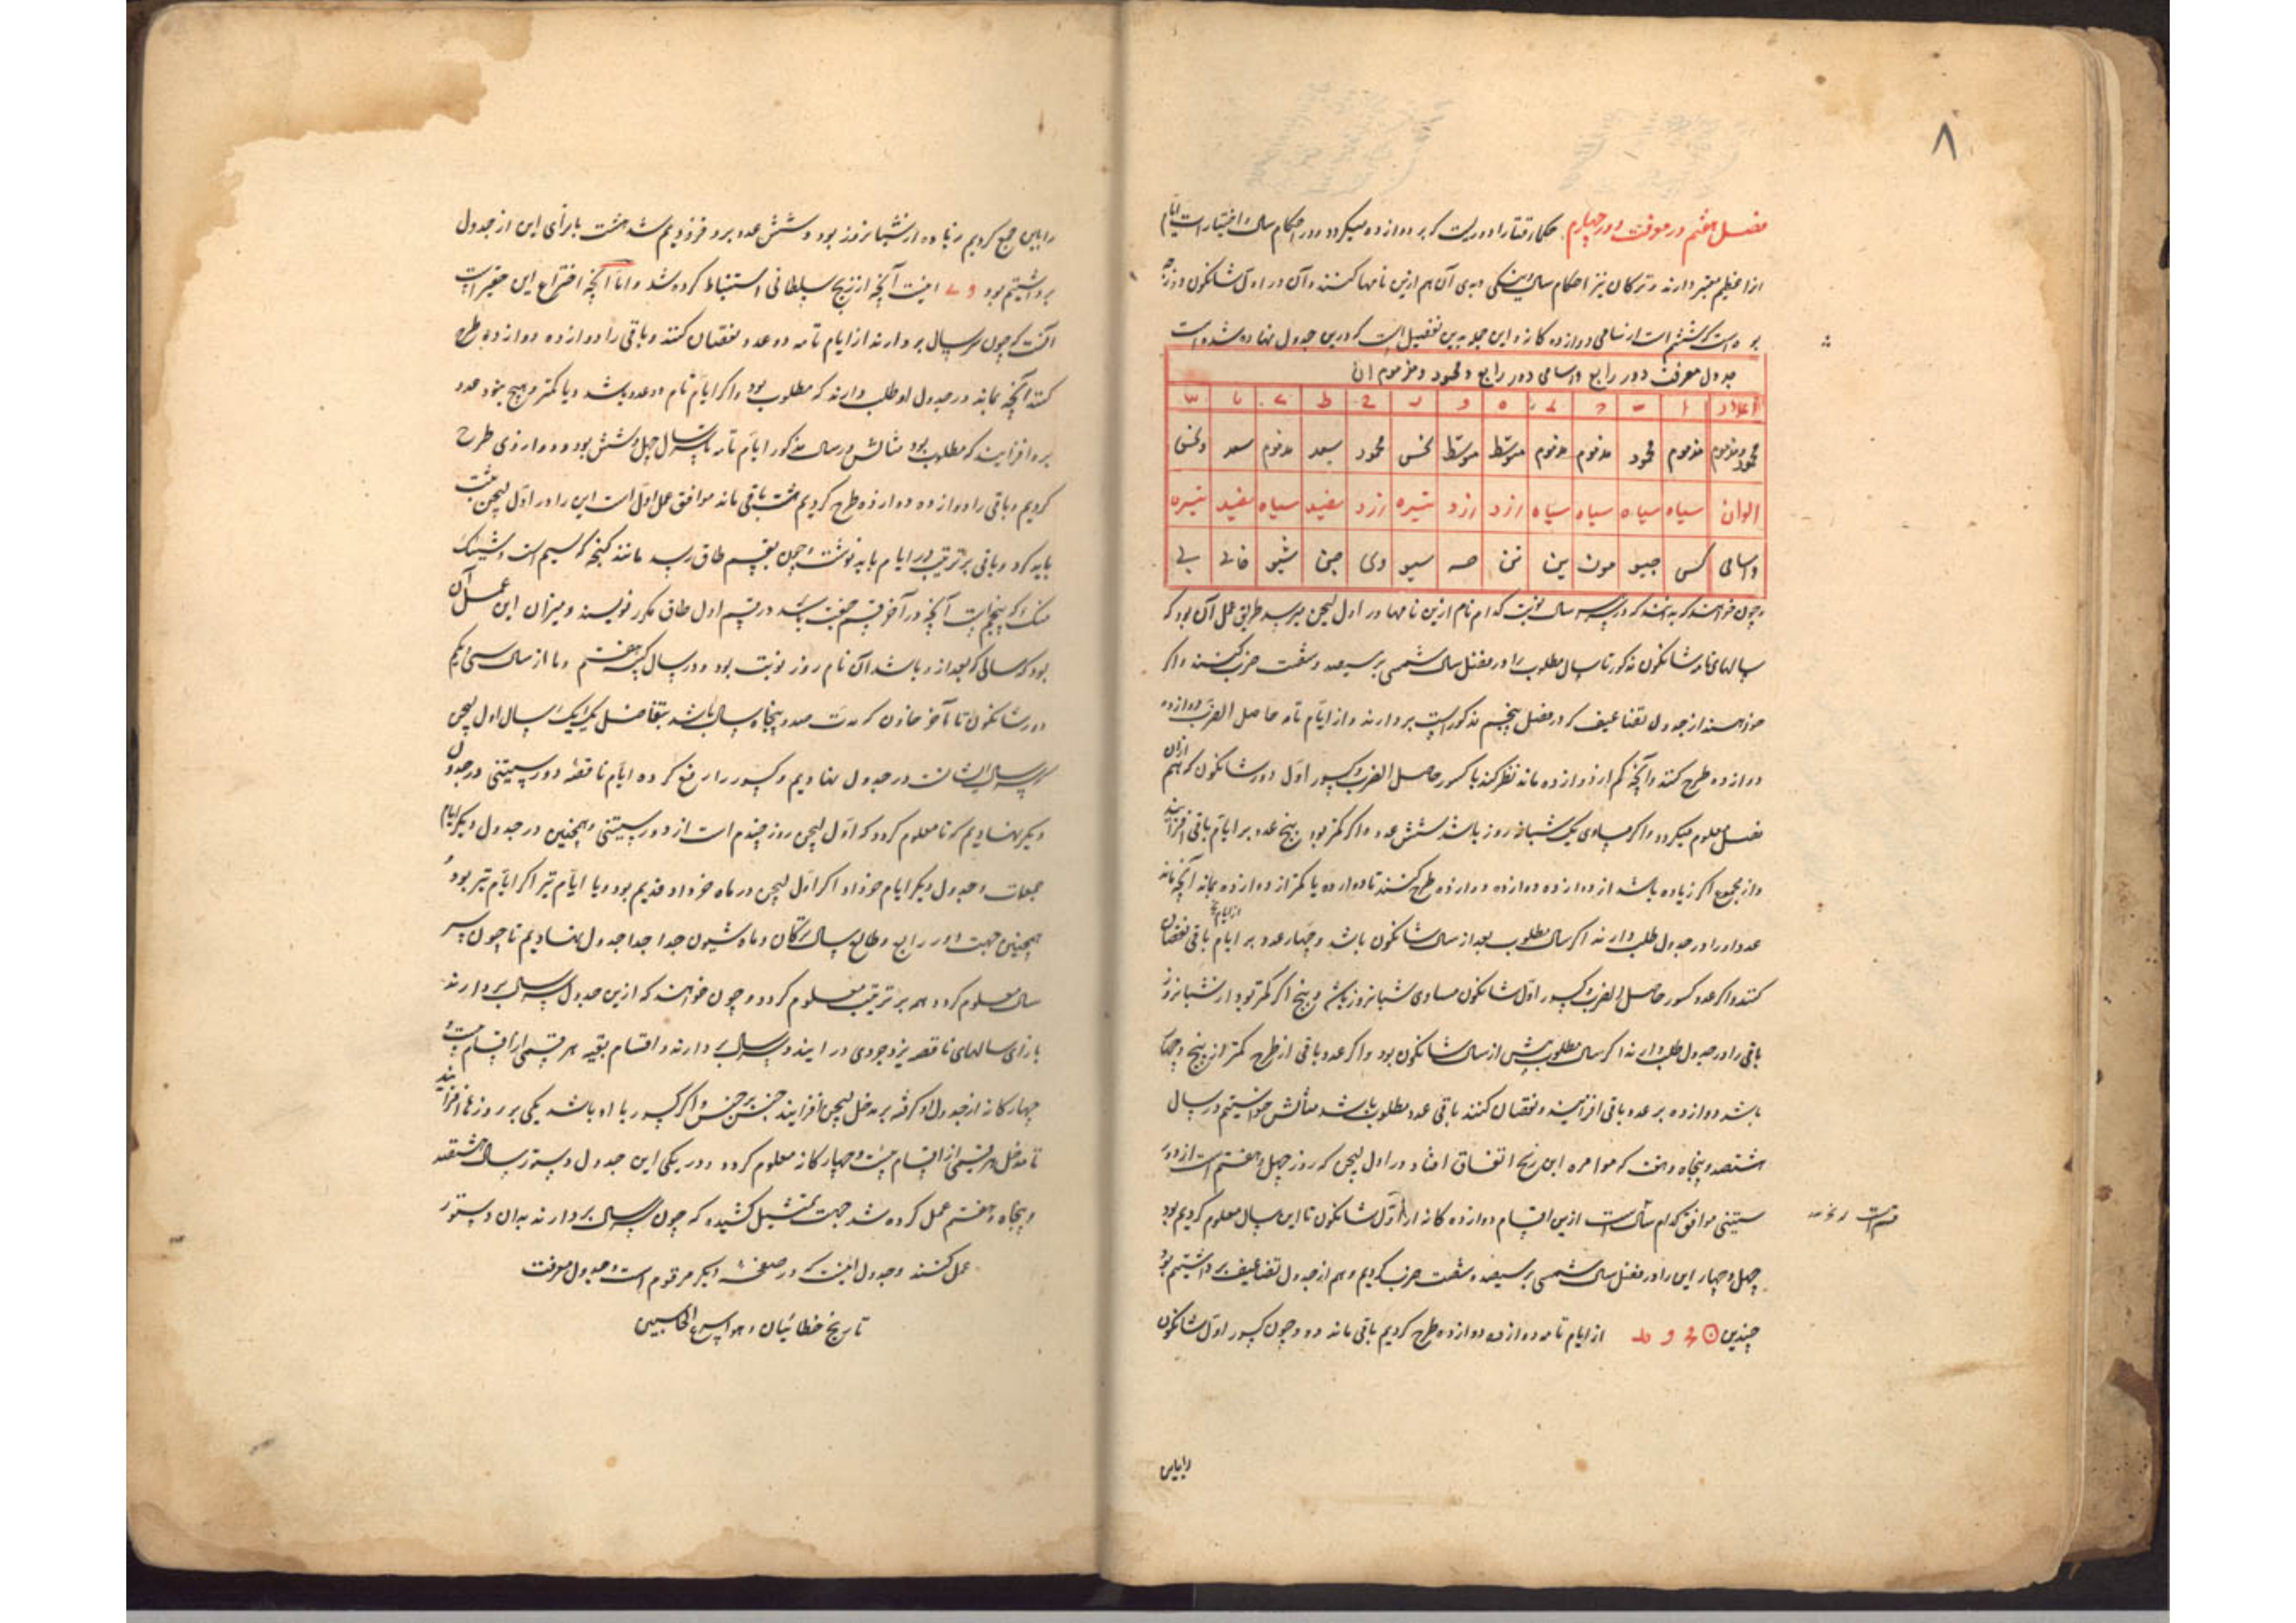 ۸
فصل هفتم در معرفت دور چهارم حکماء ختا را دوریست که بر دوازده میگردد و در احکام سال و اختیارات ایام
انرا عظیم معتبر دارند و ترکان نیز احکام سال و نیکی و بدی آن هم ازین نامها کنند و آن در اول شانکون روز
بوده است که ششم است از اسامی دوازده کانه و این جمله بدین تفصیل است که درین جدول نهاده شده است
جدول معرفت دور رابع و اسامی دور رابع و محمود و مذموم آن
اعداد ا ب ج د ه و ز ح ط ی یا یب
محمود و مذموم مذموم محمود مذموم مذموم متوسط متوسط نحس محمود سعد مذموم سعد ونحس
الوان سیاه سیاه سیاه سیاه زرد زرد تیره زرد سفید سیاه سفید تیره
واسامی کسی جیو مون ین تن حه سیو وی جن شیو خای بی
و چون خواهند که بدانند که در سر سال نوبت کدام نام ازین نامها در اول لیجن میرسد طریق عمل آن بود که
سالهای تام شانکون مذکور تا سال مطلوب را در فضل سال شمسی بر سیصد و شصت ضرب کنند و اگر
خواهند از جدول تضاعیف که در فصل پنجم مذکور است بردارند و از ایام تامه حاصل الضرب دوازده
دوازده طرح کنند و آنچه کم از دوازده ماند نظر کنند با کسور حاصل الضرب و کسور اول دور شانکون که هم ازان
فصل معلوم میگردد و اگر مساوی یک شبانروز باشد شش عدد و اگر کمتر بود پنج عدد بر ایام باقی افزایند
و از مجموع اگر زیاده باشد از دوازده دوازده دوازده طرح کنند تا دوازده یا کمتر از دوازده بماند آنچه ماند
عدد او را در جدول طلب دارند اگر سال مطلوب بعد از سال شانکون باشد و چهار عدد بر ایام باقی نقصان
کنند و اگر عدد کسور حاصل الضرب و کسور اول شانکون مساوی شبانروز باشد و پنج اگر کمتر بود از شبانروز
باقی را در جدول طلب دارند اگر سال مطلوب پیش از سال شانکون بود و اگر عدد باقی از طرح کمتر از پنج و چهار
باشد دوازده بر عدد باقی افزایند و نقصان کنند باقی عدد مطلوب باشد مثالش خواستیم در سال
هشتصد و پنجاه و هفت که موامره این زیج اتفاق افتاد در اول لیجن که روز چهل و هفتم است از دور
ستینی موافق کدام سال است ازین اقسام دوازده کانه از اول شانکون تا این سال معلوم کردیم بود
چهل و چهار این را در فضل سال شمسی بر سیصد و شصت ضرب کردیم و هم از جدول تضاعیف برداشتیم بود
چندین از ایام تامه دوازده دوازده طرح کردیم باقی ماند دو و چون کسور اول شانکون
را باین
را باین جمع کردیم زیاده از شبانروز بود و شش عدد برو افزودیم شد هشت بازای این از جدول
برداشتیم بود وی اینست آنچه از زیج سلطانی استنباط کرده شد و اما آنچه اختراع این حقیر است
آنست که چون سر سال بردارند از ایام تامه دو عدد نقصان کنند و باقی را دوازده دوازده طرح
کنند آنچه بماند در جدول او طلب دارند که مطلوب بود و اگر ایام تام دو عدد باشد و یا کمتر و هیچ نبود عدد
برو افزایند که مطلوب بود مثالش در سال مذکور ایام تامه سر سال چهل و شش بود دو از وی طرح
کردیم و باقی را دوازده دوازده طرح کردیم هشت باقی ماند موافق عمل اول است این را در اول لیجن ثبت
باید کرد و باقی بر ترتیب در ایام باید نوشت و چون بقسم طاق رسد مانند کنجه که سیم است و شینک
منک که پنجم است آنچه در آخر قسم جفت باشد در قسم اول طاق مکرر نویسند و میزان این عمل آن
بود که سالی که بعد از و باشد آن نام روز نوبت بود و در سال کبیسه هفتم و ما از سال سی و یکم
دور شانکون تا آخر خاون که مدت صد و پنجاه سال باشد بتفاضل یک یک سال اول لیجن
سر سال ایشان در جدول نهادیم و کسور را رفع کرده ایام ناقصه دور ستینی در جدول
دیگر نهادیم که تا معلوم گردد که اول لیجن روز چندم است از دور ستینی و همچنین در جدول دیگر ایام
جمعات و جدول دیگر ایام خرداد اگر اول لیجن در ماه خرداد قدیم بود و یا ایام تیر اگر ایام تیر بود و
همچنین جهت دور رابع و طالع سال ترکان و ماه شیون جدا جدا جدول نهادیم تا چون سر
سال معلوم گردد همه بر ترتیب معلوم گردد و چون خواهند که ازین جدول سر سال بردارند
بازای سالهای ناقصه یزدجردی در ایند و سر سال بردارند و اقسام بقیه هر قسمی از اقسام بیست و
چهارکانه از جدول او گرفته بر مدخل لیجن افزایند جنس بر جنس و اگر کسور با او باشد یکی بر روزها افزایند
تا مدخل هر قسمی از اقسام بیست و چهارکانه معلوم گردد و در یکی این جدول دستور سال هشتصد
و پنجاه و هفتم عمل کرده شد جهت تمثیل کشیده که چون سر سال بردارند بدان دستور
عمل کنند و جدول اینست که در صفحه دیگر مرقوم است و جدول معرفت
تاریخ خطائیان و هو اسرع الحاسبین